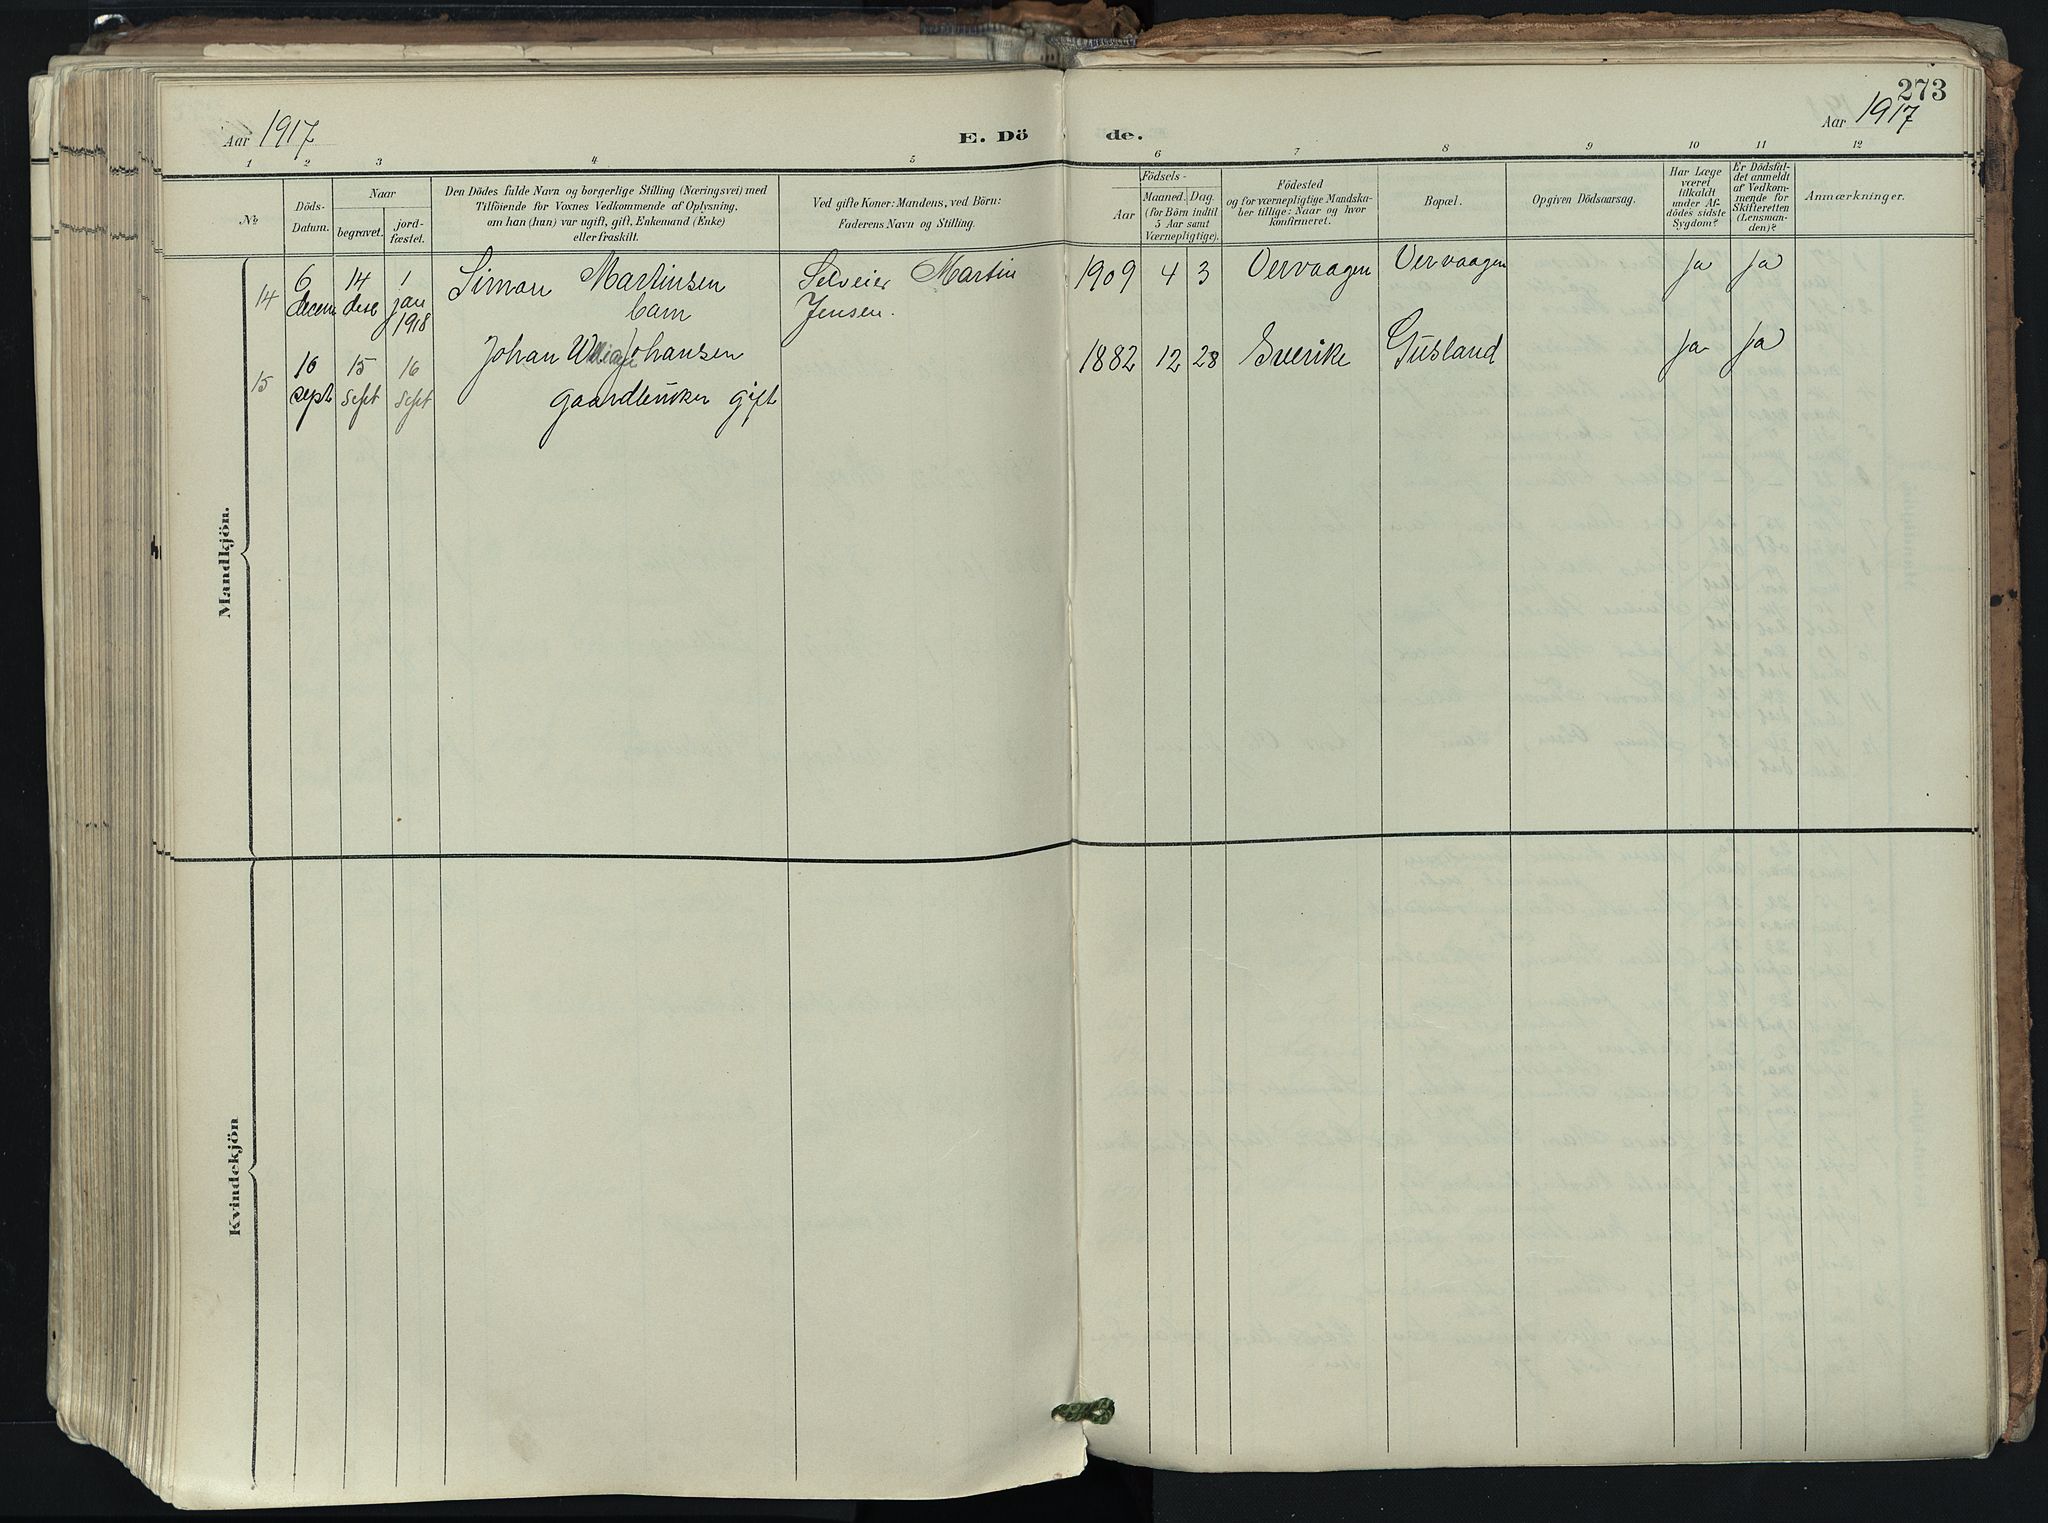 273
Aar 1917
E. Dö de.
Aar 1917
1 2 3 4 5 6 7 8 9 10 11 12
No
Döds-
Datum.
Naar
begravet.
jord-
fæstet.
Den Dödes fulde Navn og borgerlige Stilling (Næringsvei) med
Tilföiende for Voxnes Vedkommende af Oplysning,
om han (hun) var ugift, gift, Enkemand (Enke)
eller fraskilt.
Ved gifte Koner: Mandens, ved Börn:
Faderens Navn og Stilling.
Födsels-
Aar
Maaned. Dag.
(for Börn indtil
5 Aar samt
Værnepligtige).
Födested
og for værnepligtige Mandska-
ber tillige: Naar og hvor
konfirmeret.
Bopæl.
Opgiven Dödsaarsag.
Har Læge
været
tilkaldt
under Af-
dödes sidste
Sygdom?
Er Dödsfal-
det anmeldt
af Vedkom-
mende for
Skifteretten
(Lensman-
den)?
Anmærkninger.
Mandkjön.
14
6
decem
14
des
1
jan
1918
Simon Martinsen
barn
Selveier Martin
Jensen.
1909 4 3 Vervaagen Vervaagen ja ja
15
10
sept
15
sept
16
sept
Johan Johansen
gaardbruker gift
1882 12 28 Sverike Gusland ja ja
Kvindekjön